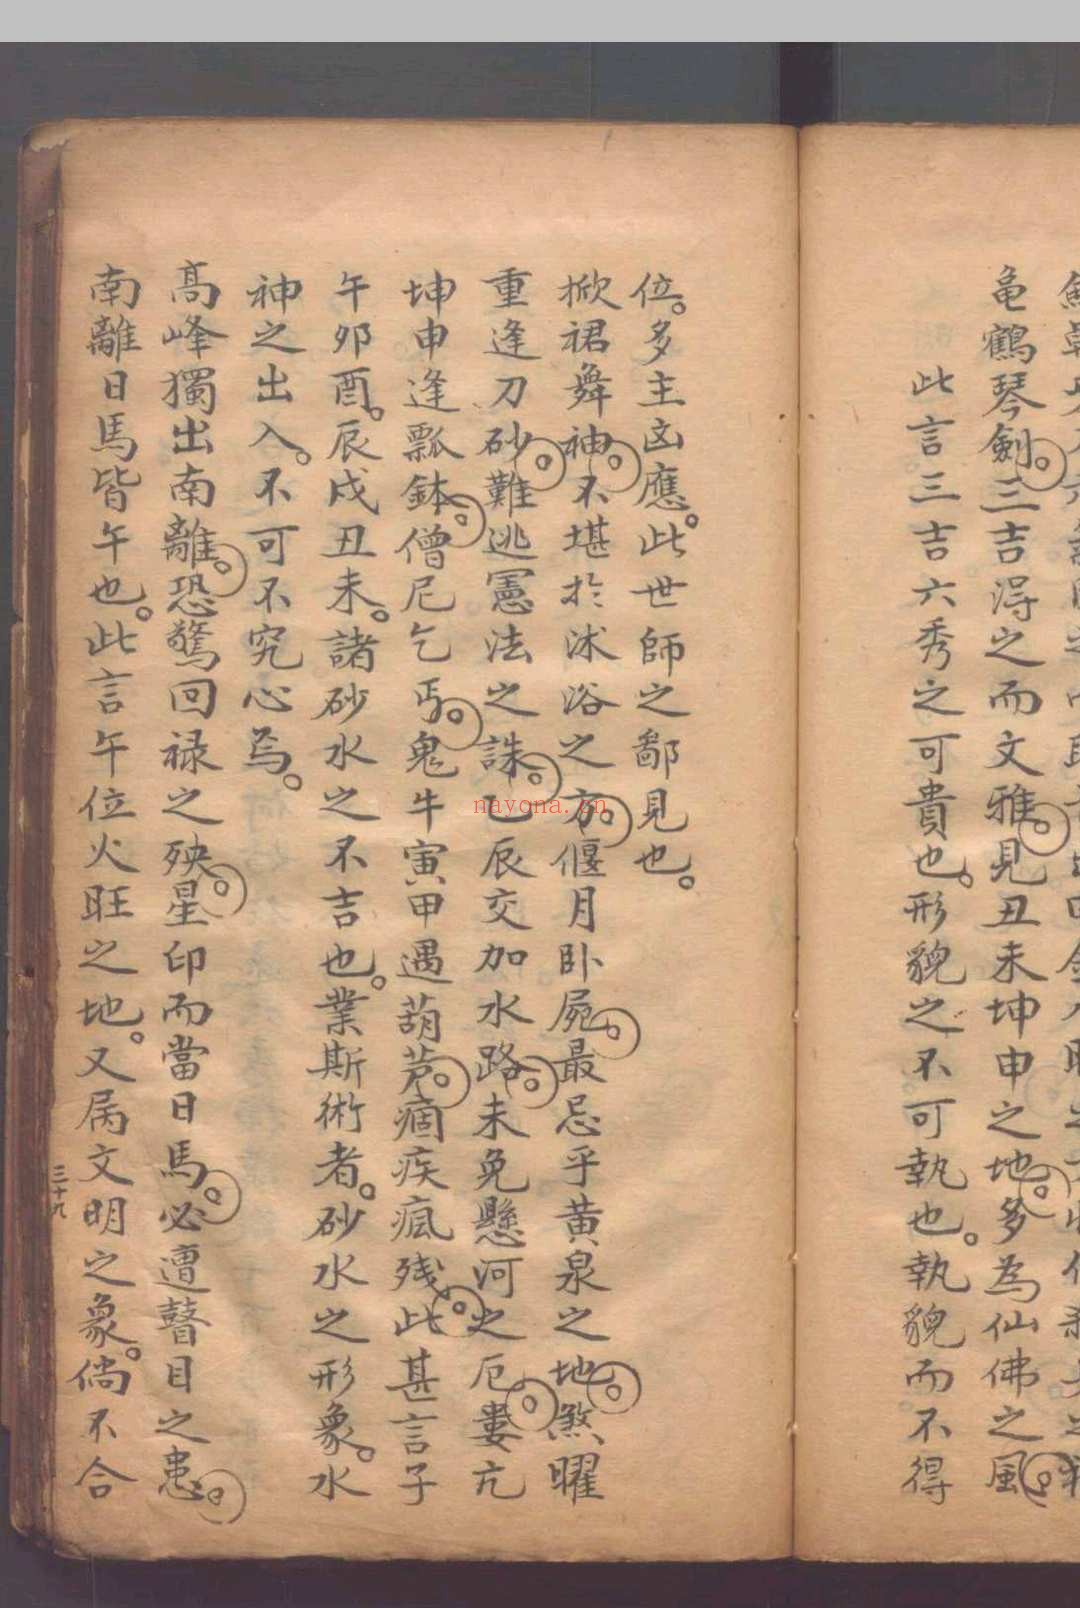 龜鶴琴劍三吉淂之而文雅見丑未坤申之地多為仙佛之風
此言三吉六秀之可貴也。形貌之不可執也。執貌而不得
位。多主凶應。此世師之鄙見也。
掀裙舞神不堪於沭浴之方偃月卧屍最忌乎黃泉之地煞曜
重逢刀砂難逃憲法之誅巳辰交加水路未免懸河之厄婁亢
坤申逢瓢鉢僧尼乞丐鬼牛寅甲遇葫芦痼疾瘋残此甚言子
午夘酉。辰戌丑未。諸砂水之不吉也。業斯術者。砂水之形象。水
神之出入。不可不究心焉。
高峰獨出南離。恐驚回禄之殃星印而當日馬必遭瞽目之患
南離日馬皆午也。此言午位火旺之地。又属文明之象。倘不合
三十九
nayona.cn